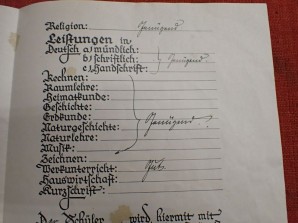 Religion: Genügend
Leistungen in
Deutsch a) mündlich:
b) schriftlich: Genügend
c) Handschrift:
Rechnen:
Raumlehre:
Heimatkunde:
Geschichte:
Erdkunde:
Naturgeschichte: Genügend.
Naturlehre:
Musik:
Zeichnen:
Werkunterricht: Gut.
Hauswirtschaft:
Kurzschrift:
Der Schüler wird hiermit mit